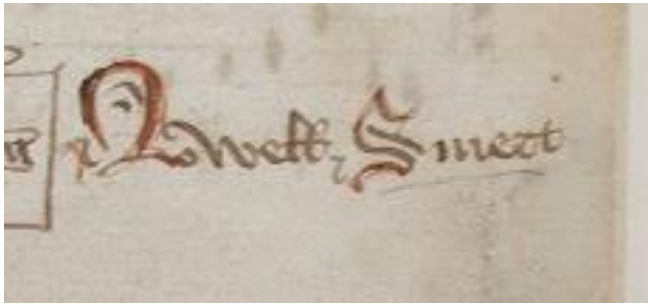 Nowell Smert